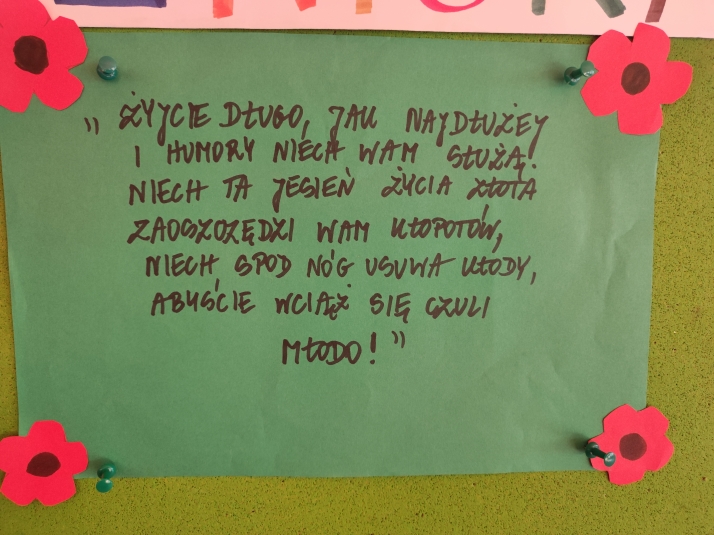 „ ŻYJCIE DŁUGO, JAK NAJDŁUŻEJ
I HUMORY NIECH WAM SŁUŻĄ.
NIECH TA JESIEŃ ŻYCIA ZŁOTA
ZAOSZCZĘDZI WAM KŁOPOTÓW,
NIECH SPOD NÓG USUWA KŁODY,
ABYŚCIE WCIĄŻ SIĘ CZULI
MŁODO! ”